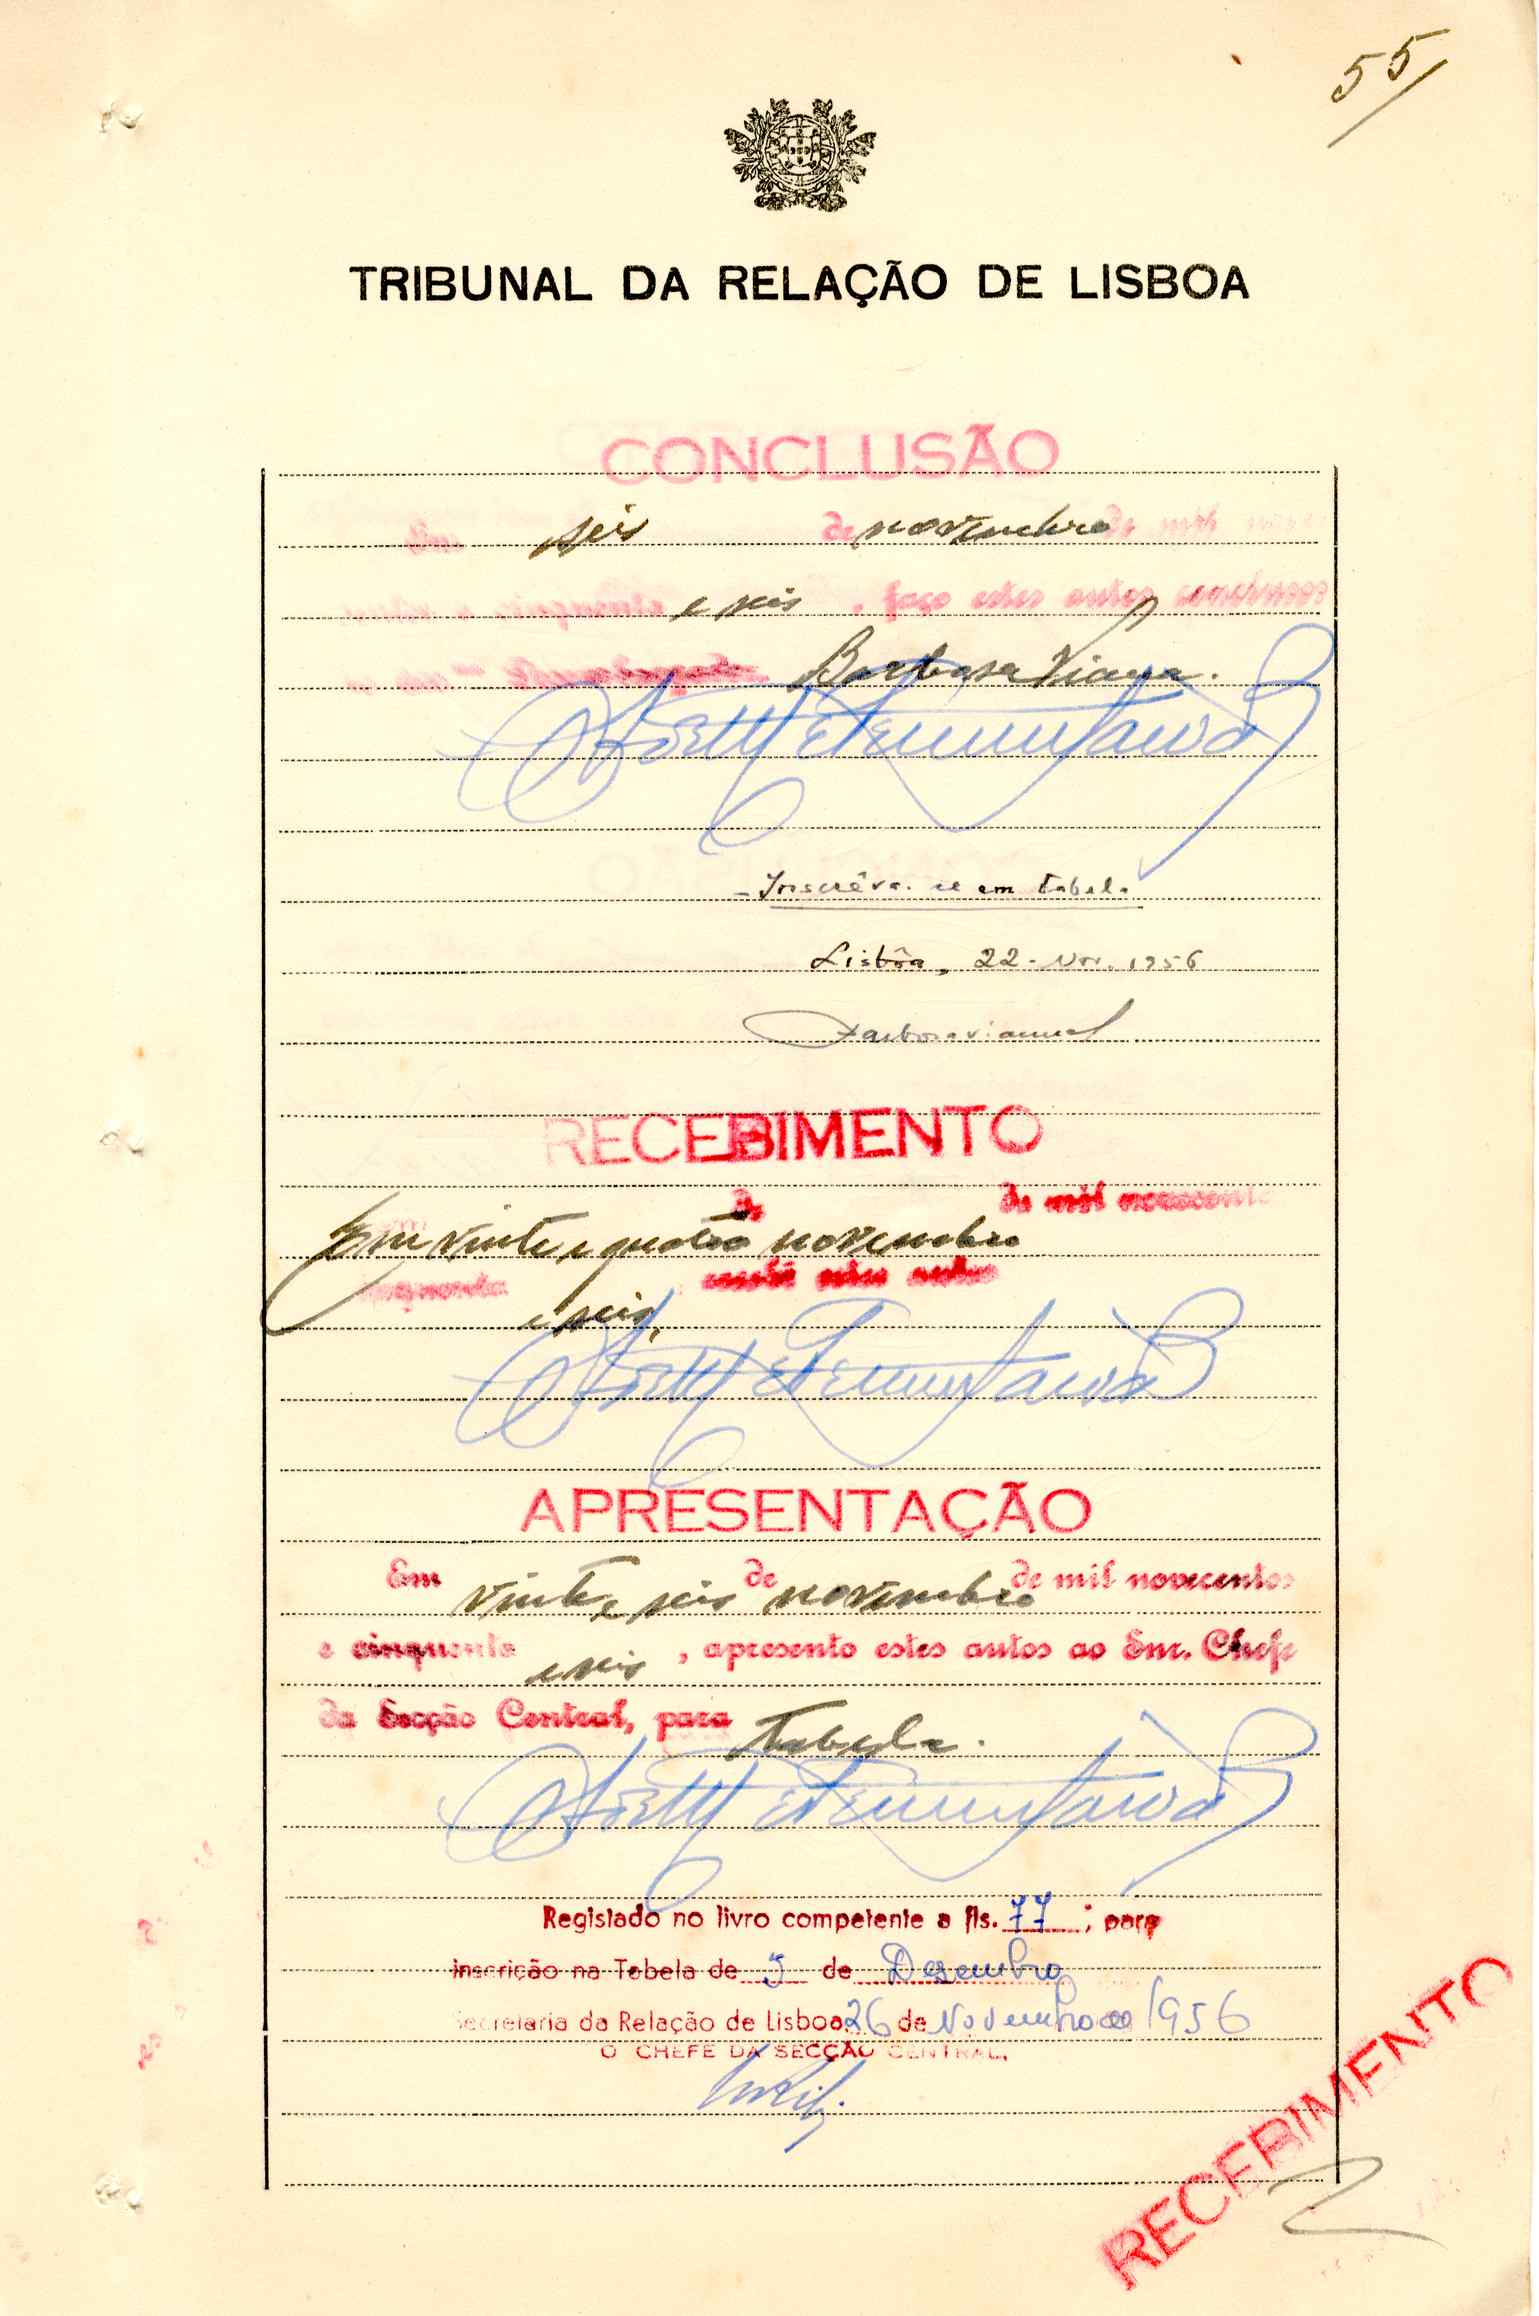 55/
TRIBUNAL DA RELAÇÃO DE LISBOA
CONCLUSÃO
Em seis de novembro
cinquenta e seis, faço estes autos conclusos
Barbosa Viana.
- Inscrêva-se em tabela
Lisbôa, 22-Nov. 1956
Barbosa Vianna
RECEBIMENTO
de de mil novecentos
Em vinte e quatro novembro
cinquenta recebi estes autos
e seis,
APRESENTAÇÃO
Em vinte e seis de novembro de mil novecentos
e cinquenta e seis, apresento estes autos ao Snr. Chefe
da Secção Central, para tabela.
Registado no livro competente a fls. 77; para
inscrição na Tabela de 5 de Dezembro
Secretaria da Relação de Lisboa 26 de Novembro de 1956
O CHEFE DA SECÇÃO CENTRAL,
RECEBIMENTO